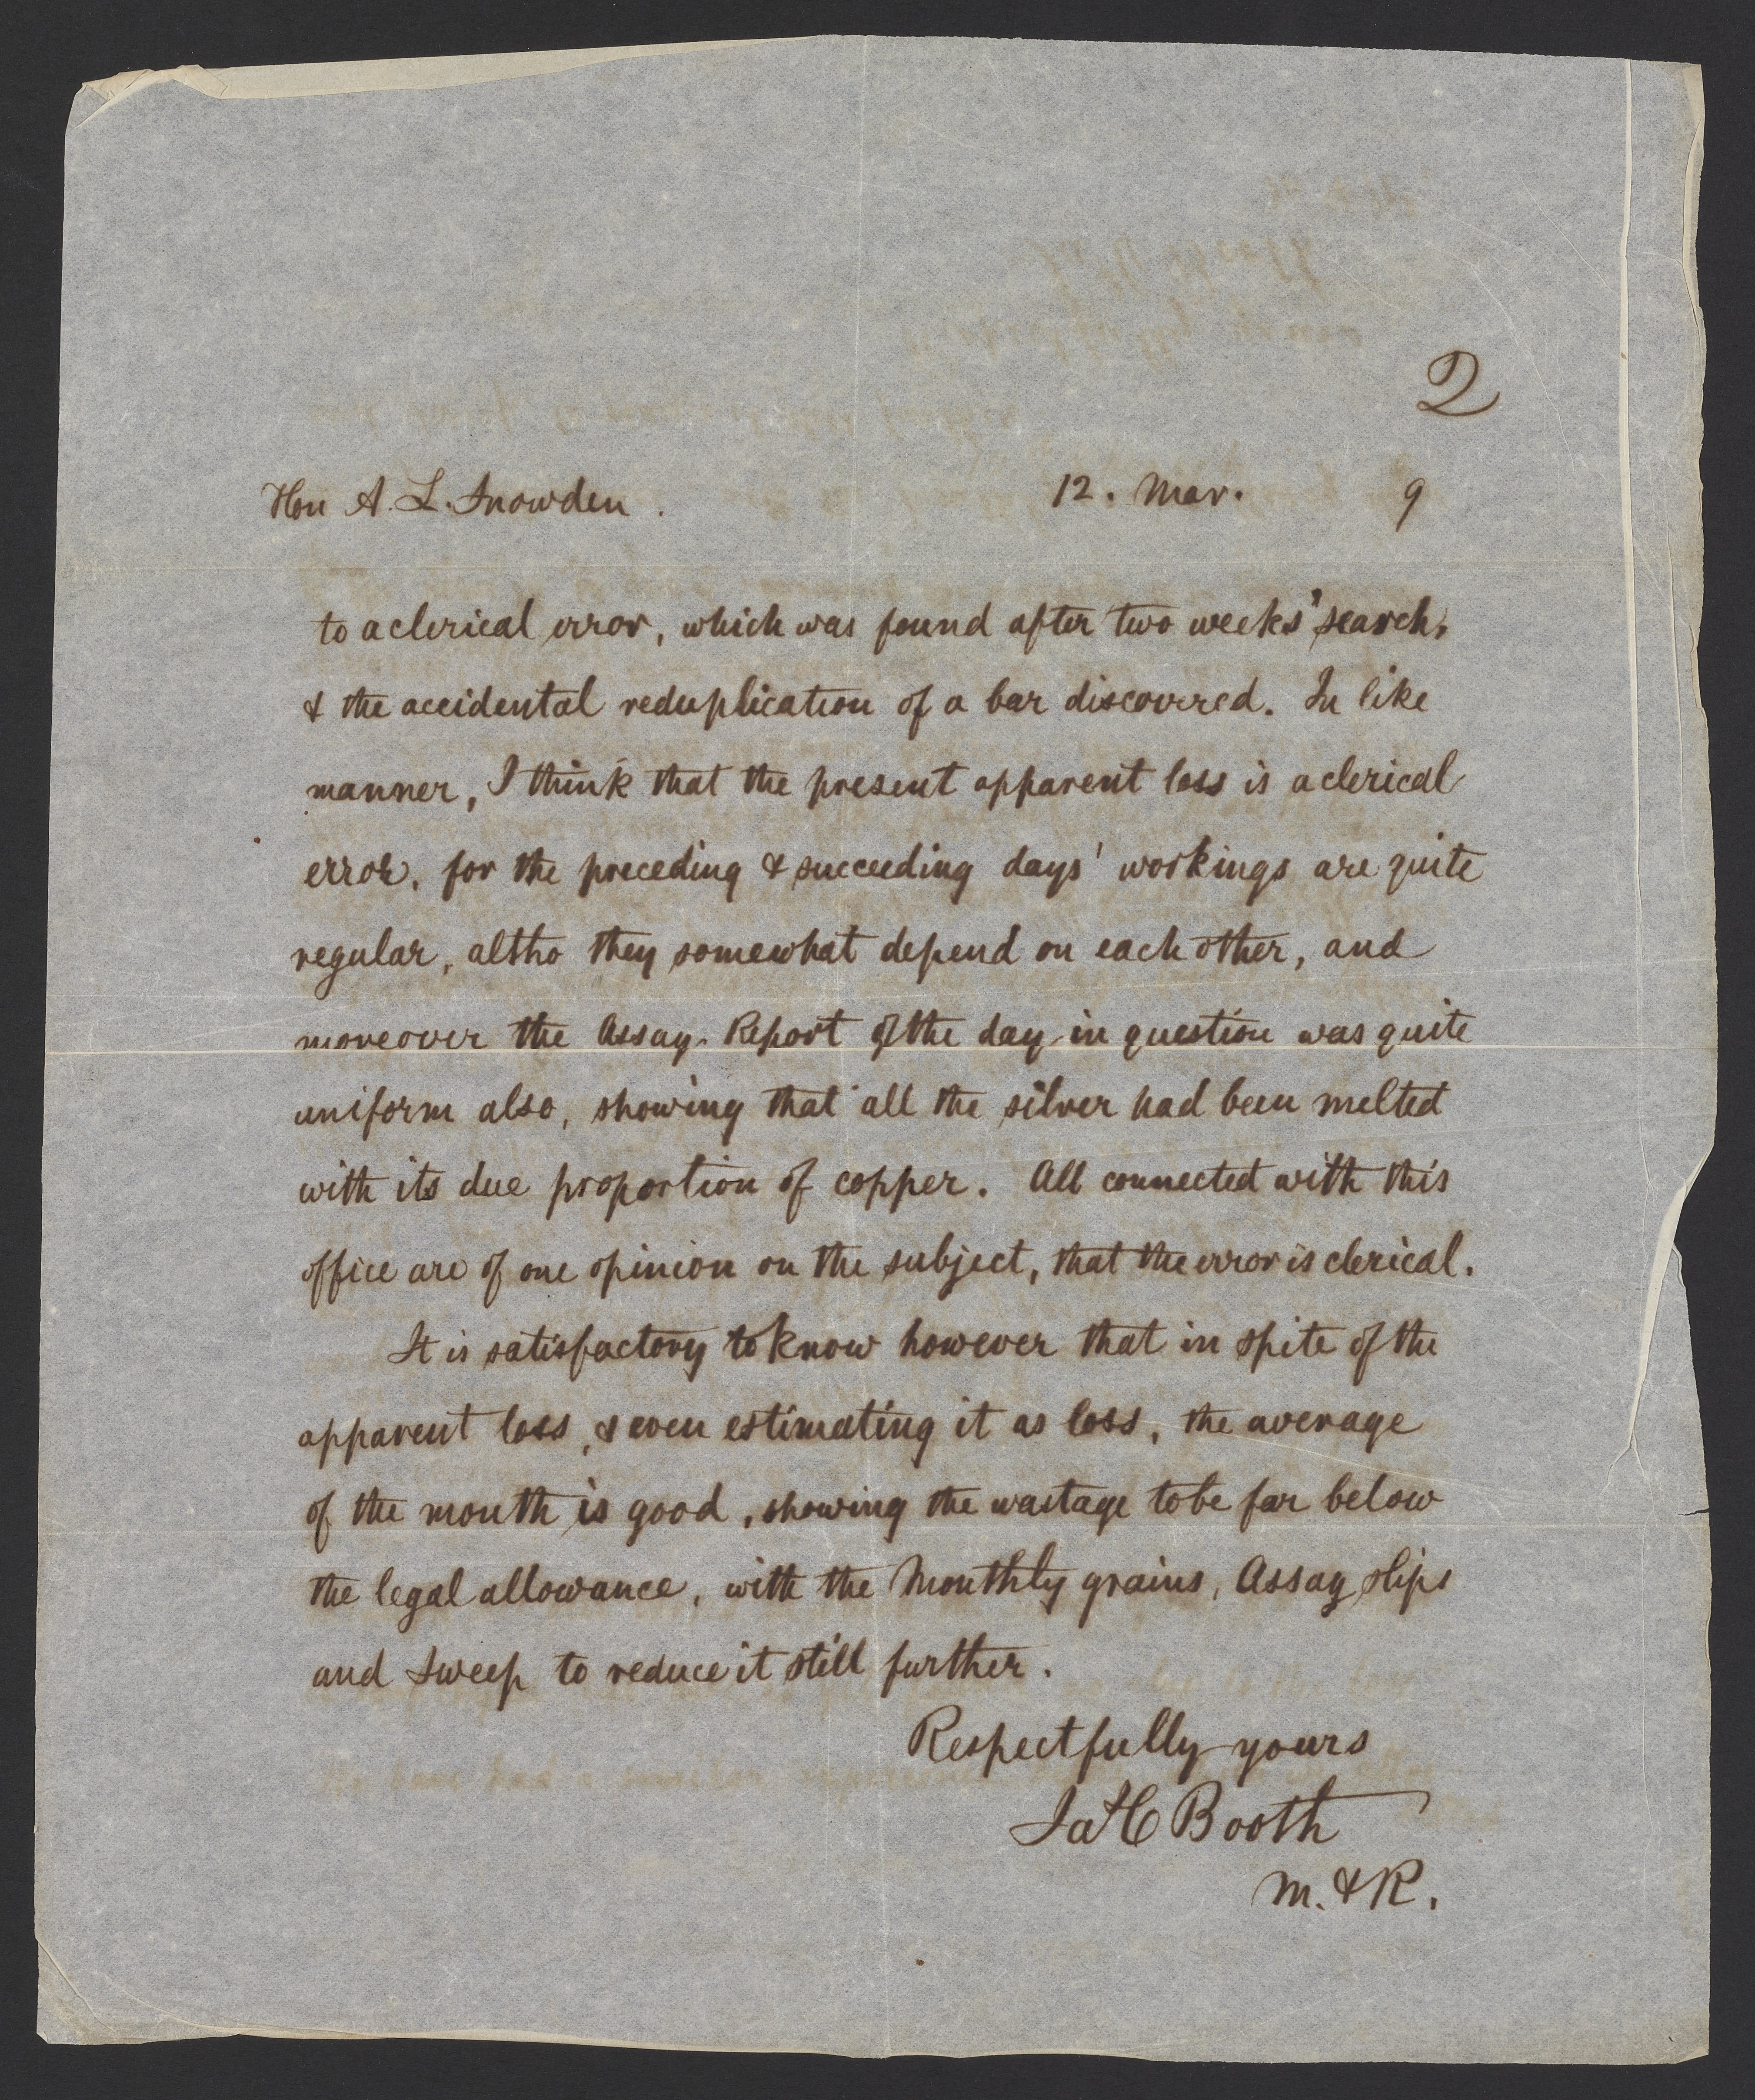 2
Hon A. L. Snowden. 12. Mar. 9
to a clerical error, which was found after two weeks' search,
& the accidental reduplication of a bar discovered. In like
manner, I think that the present apparent loss is a clerical
error, for the preceding & succeeding days' workings are quite
regular, altho they somewhat depend on each other, and
moreover the Assay-Report of the day in question was quite
uniform also, showing that all the silver had been melted
with its due proportion of copper. All connected with this
office are of one opinion on the subject, that the error is clerical.
It is satisfactory to know however that in spite of the
apparent loss, & even estimating it as loss, the average
of the month is good, showing the wastage to be far below
the legal allowance, with the Monthly grains, Assay slips
and Sweep to reduce it still further.
Respectfully yours
Ja H Booth
M. & R.